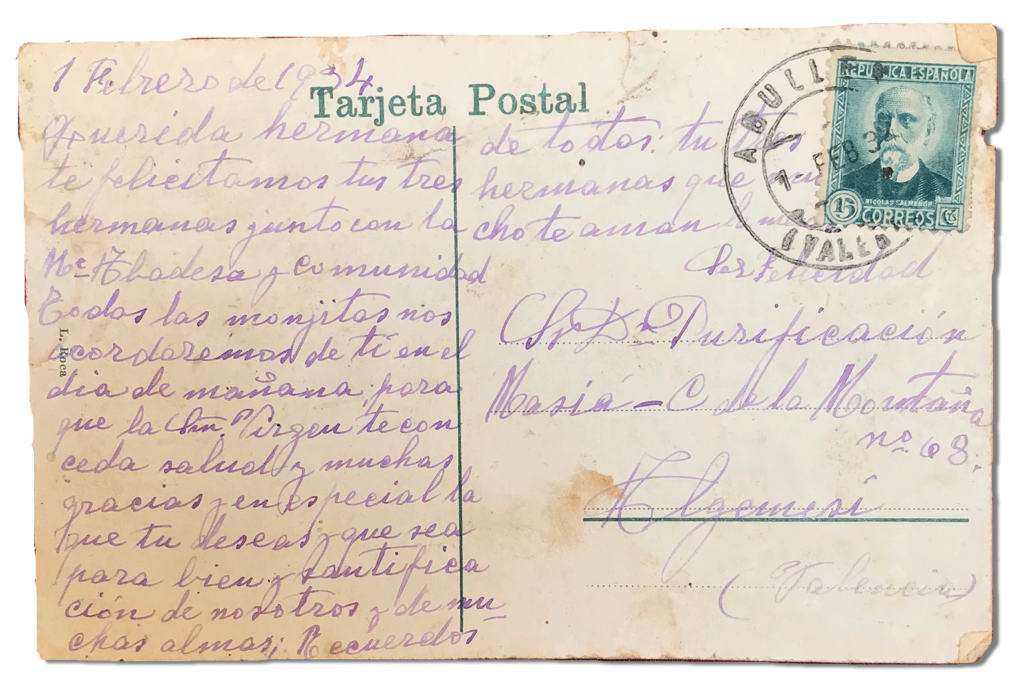 1 Febrero de 1934
Tarjeta Postal
Querida hermana
te felicitamos tus tres
hermanas junto con la
Me. Abadesa y comunidad
Todas las monjitas nos
acordaremos de tí en el
dia de mañana, para
que la Sm. Virgen te con
ceda salud y muchas
gracias y en especial la
que tu deseas y que sea
para bien y santifica
ción de nosotros y de mu-
chas almas; Recuerdos
de todos: tu
hermanas que
cho te aman
Sor Felicidad
Sr. Dª Purificación
Masiá - C de la Montaña
nº 68.
Algemesí
(Valencia)
L. Roca
REPUBLICA ESPAÑOLA
NICOLAS SALMERON
15 CORREOS CTS
1 - FEB 34
(VALE